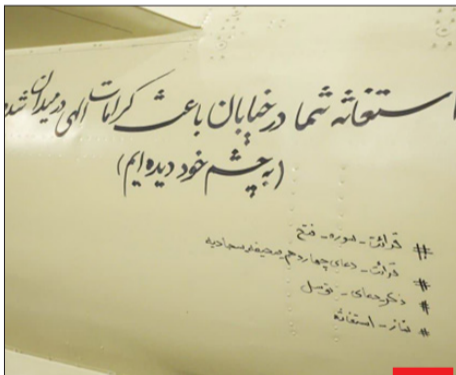 استغاثه شما در خیابان باعث کرامات الهی در میدان شده
(به چشم خود دیده ایم)
# قرائت - سوره - فتح
# قرائت - دعای چهاردهم صحیفه سجادیه
# ذکر دعای - توسل
# نماز - استغاثه